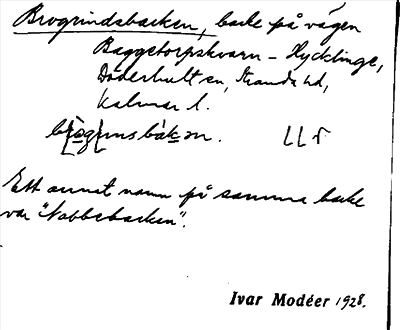 Brogrindsbacken, backe på vägen
Baggetorpskvarn - Hycklinge,
Döderhult sn, Stranda hd,
Kalmar l.
Ett annat namn på samma backe
var "Nabbebacken".
Ivar Modéer 1928.